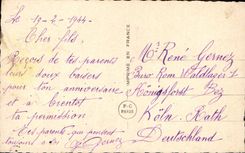 Le 19-2-1944-
Cher fils.
Reçois de tes parents
leur doux baisers
pour ton anniversaire
et à bientot
la permission
Tes parents qui pensent
toujours a toi Gernez
IMPRIMÉ EN FRANCE
P-C
PARIS
Mr René Gernez
Königsforst Bez
Köln-Rath
Deutschland